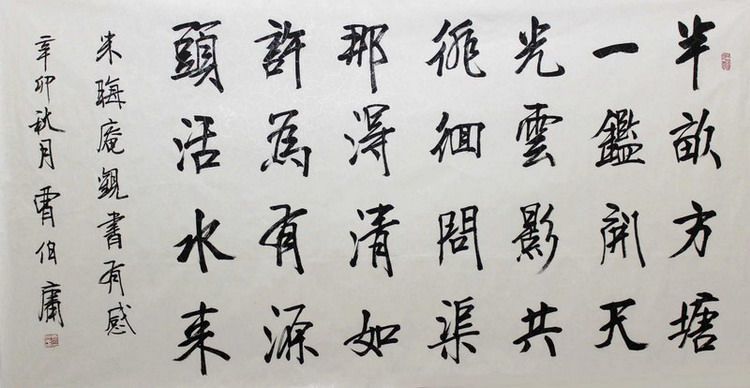 半畝方塘
一鑑開天
光雲影共
徘徊問渠
那得清如
許為有源
頭活水来
朱晦庵觀書有感
辛卯秋月曹伯庸